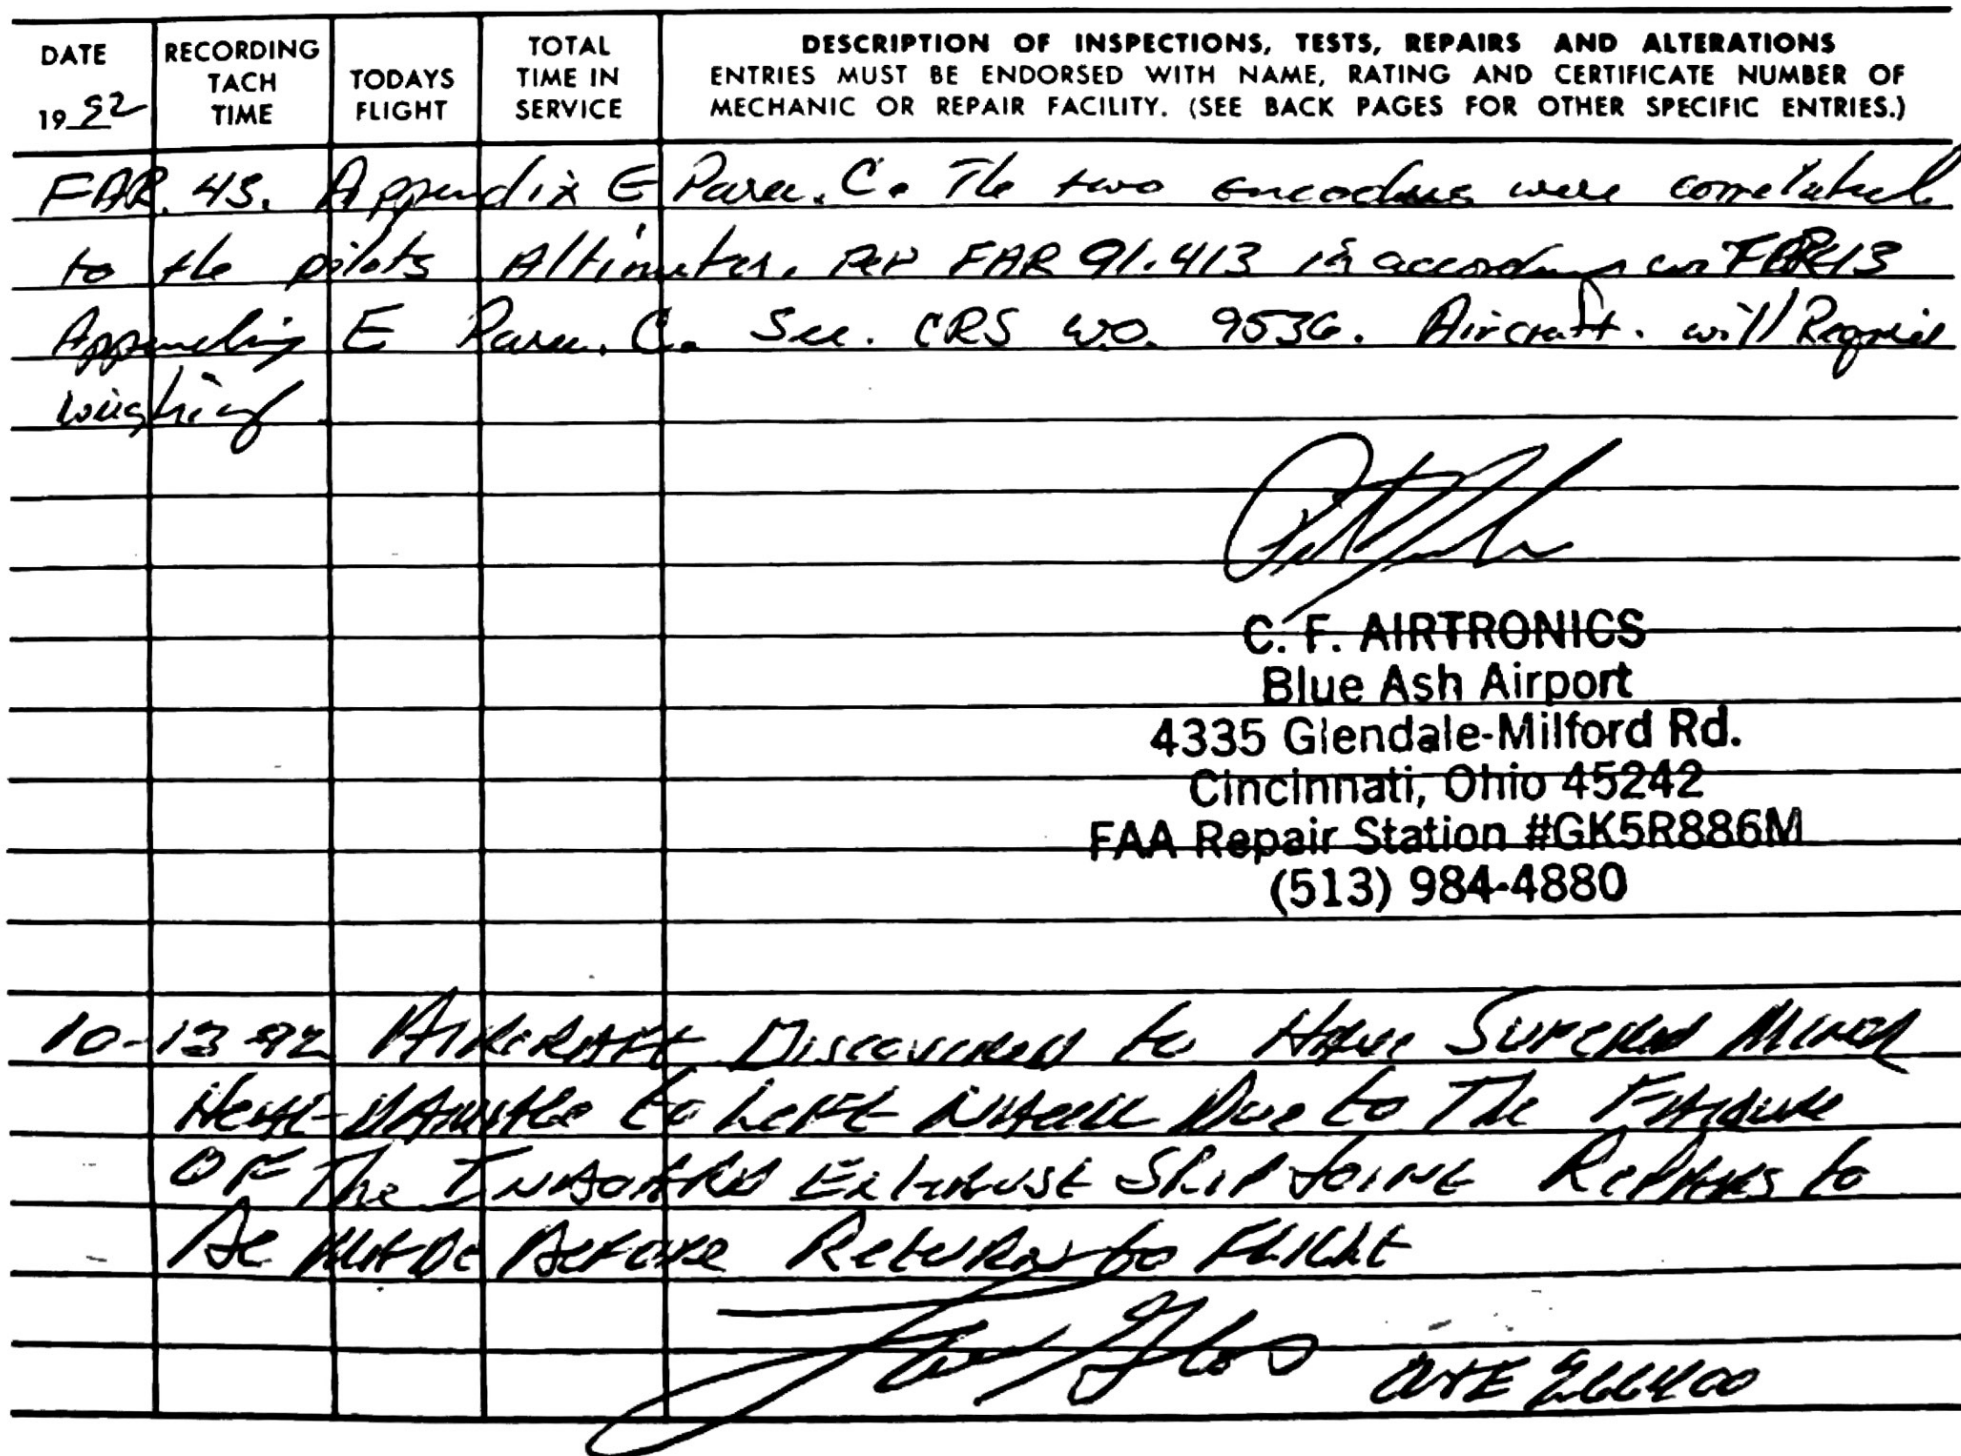 DATE
19 92
RECORDING TACH TIME
TODAYS FLIGHT
TOTAL TIME IN SERVICE
DESCRIPTION OF INSPECTIONS, TESTS, REPAIRS AND ALTERATIONS
ENTRIES MUST BE ENDORSED WITH NAME, RATING AND CERTIFICATE NUMBER OF
MECHANIC OR REPAIR FACILITY. (SEE BACK PAGES FOR OTHER SPECIFIC ENTRIES.)
FAR. 43. Appendix E Para. C. The two encoders were correlated
to the pilots Altimeter. per FAR 91.413 in accordance w FAR43
Appendix E Para. C. See. CRS W.O. 9536. Aircraft. will Require
weighing
C. F. AIRTRONICS
Blue Ash Airport
4335 Glendale-Milford Rd.
Cincinnati, Ohio 45242
FAA Repair Station #GK5R886M
(513) 984-4880
10-13-92 AIRCRAFT Discovered to Have Suffered Minor
Heat Damage to Left Nacelle Due to The Failure
OF The Inboard Exhaust Slip Joint Repairs to
Be Made Before Return to Flight